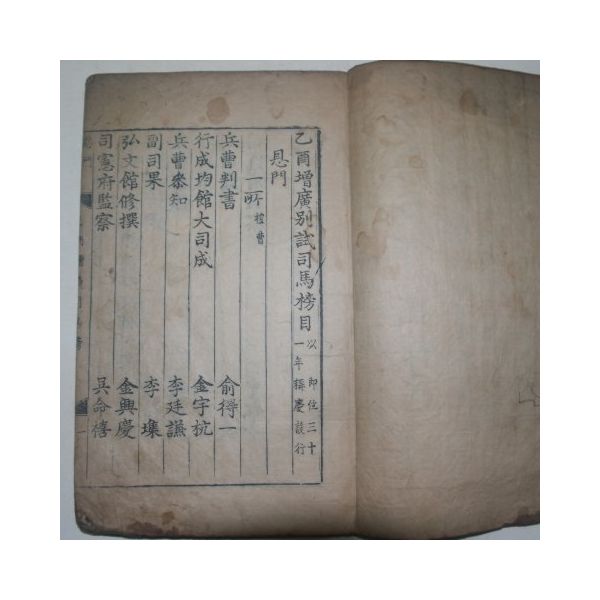 乙酉增廣別試司馬榜目 以即位三十一年稱慶設行
恩門
一所 禮曹
兵曹判書 俞得一
行成均館大司成 金宇杭
兵曹叅知 李廷謙
副司果 李㙫
弘文館修撰 金興慶
司憲府監察 吳命禧